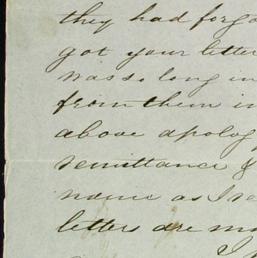 they had forgo
got your letter
was so long in
from them in
above apolog
remittance &
name as I re
letters are mo